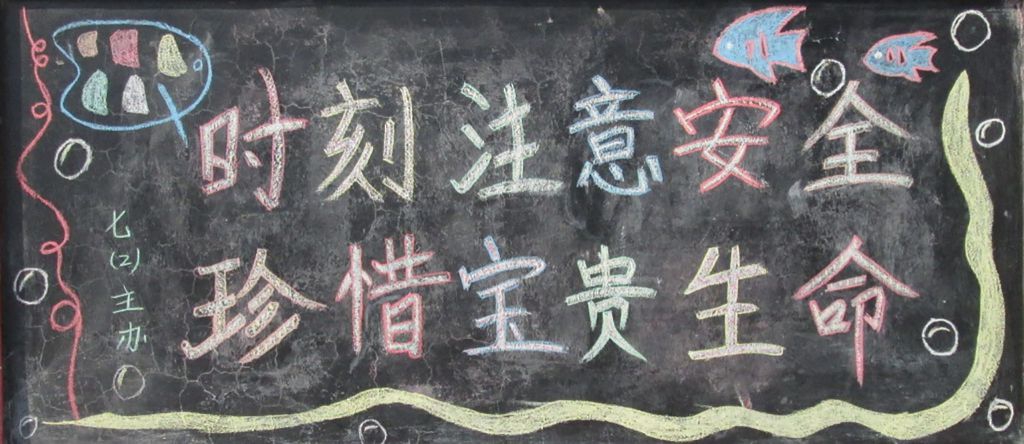 时刻注意安全
珍惜宝贵生命
七(2)主办